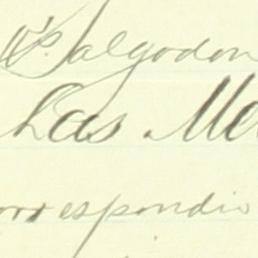 algodon
has Me
orrespondio